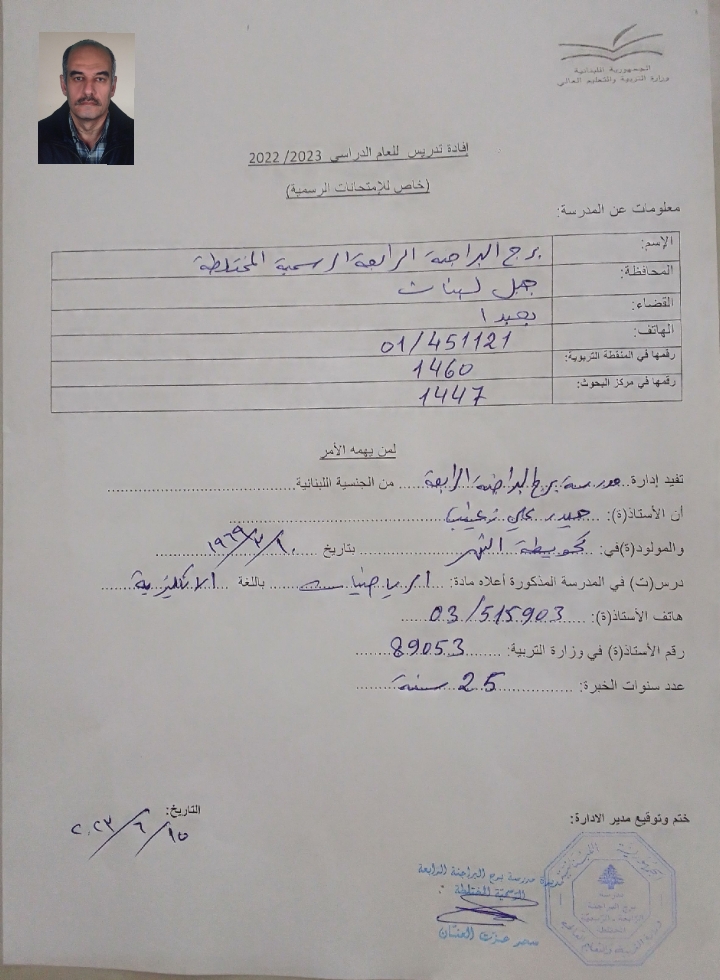 الجمهورية اللبنانية
وزارة التربية والتعليم العالي
إفادة تدريس للعام الدراسي 2022/2023
(خاص للإمتحانات الرسمية)
معلومات عن المدرسة:
الإسم: برج البراجنة الرابعة الرسمية المختلطة
المحافظة: جبل لبنان
القضاء: بعبدا
الهاتف: 01/451121
رقمها في المنقطة التربوية: 1460
رقمها في مركز البحوث: 1447
لمن يهمه الأمر
تفيد إدارة مدرسة برج البراجنة الرابعة من الجنسية اللبنانية
أن الأستاذ(ة): حيدر علي زعيتر
والمولود(ة)في: بتاريخ ١٩٦٩/٣/١٠
درس(ت) في المدرسة المذكورة أعلاه مادة: الرياضيات باللغة الانكليزية
هاتف الأستاذ(ة): 03/515903
رقم الأستاذ(ة) في وزارة التربية: 89053
عدد سنوات الخبرة: 25 سنة
ختم وتوقيع مدير الادارة:
التاريخ:
٢٠٢٣/٦/١٥
مديرة مدرسة برج البراجنة الرابعة
الرسمية المختلطة
سحر عزت